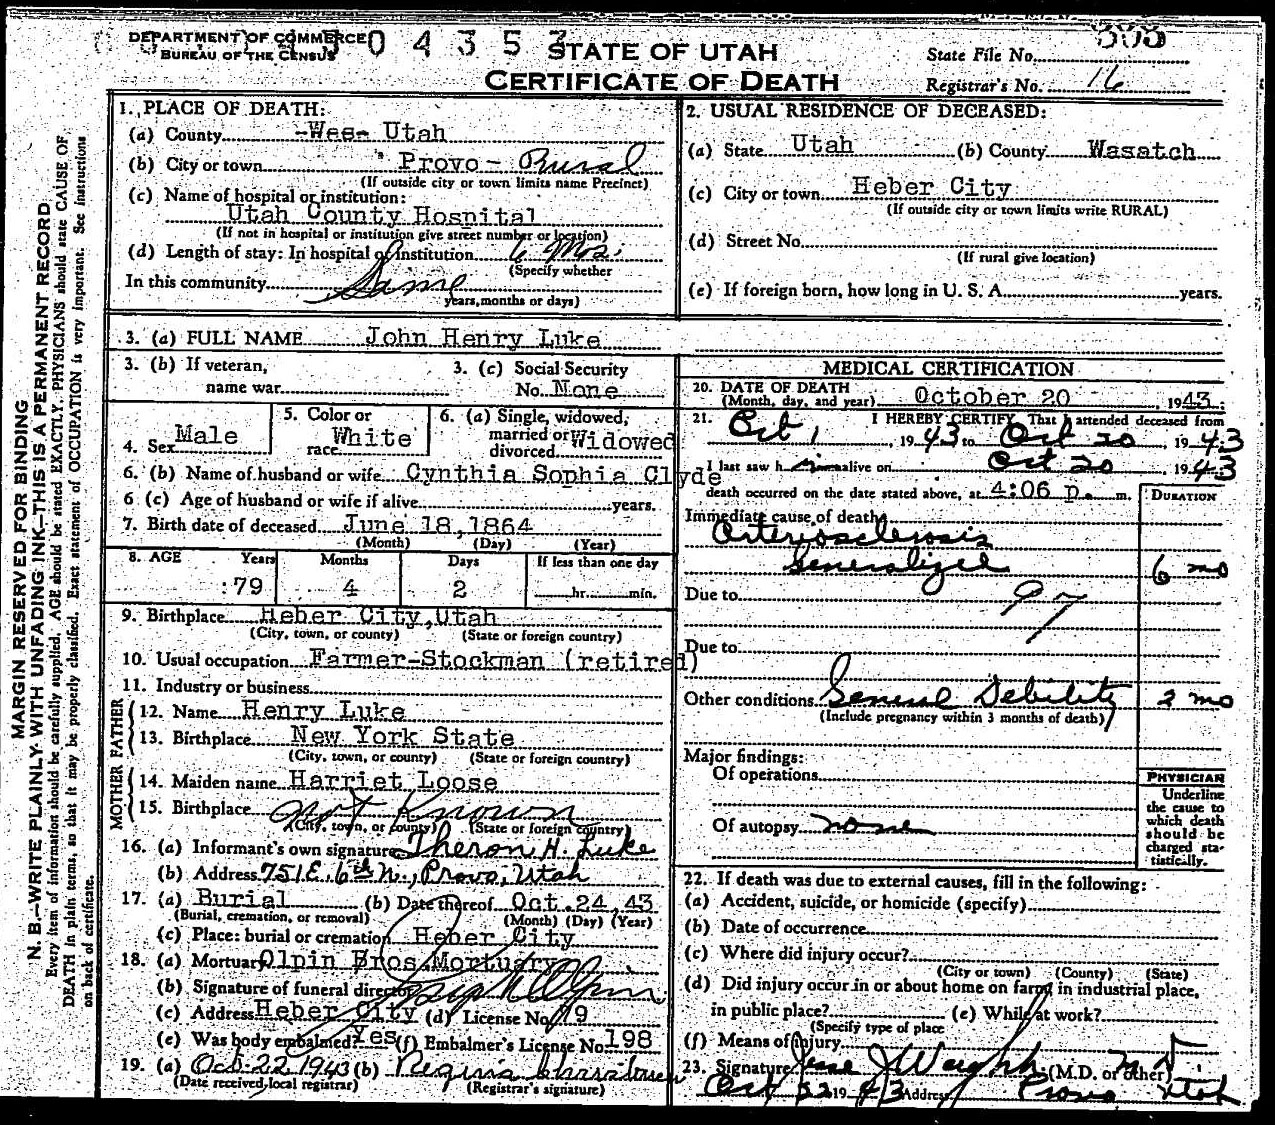 DEPARTMENT OF COMMERCE
BUREAU OF THE CENSUS
04353
STATE OF UTAH
CERTIFICATE OF DEATH
State File No. 355
Registrar's No. 16
MARGIN RESERVED FOR BINDING
N. B.—WRITE PLAINLY WITH UNFADING INK—THIS IS A PERMANENT RECORD
Every item of information should be carefully supplied. AGE should be stated EXACTLY. PHYSICIANS should state CAUSE OF
DEATH in plain terms, so that it may be properly classified. Exact statement of OCCUPATION is very important. See instructions
on back of certificate.
1. PLACE OF DEATH:
(a) County -Was- Utah
(b) City or town Provo - Rural
(If outside city or town limits name Precinct)
(c) Name of hospital or institution:
Utah County Hospital
(If not in hospital or institution give street number or location)
(d) Length of stay: In hospital or institution 6 Mos.
(Specify whether
In this community Same
years, months or days)
2. USUAL RESIDENCE OF DECEASED:
(a) State Utah (b) County Wasatch
(c) City or town Heber City
(If outside city or town limits write RURAL)
(d) Street No.
(If rural give location)
(e) If foreign born, how long in U. S. A. years.
3. (a) FULL NAME John Henry Luke
3. (b) If veteran,
name war
3. (c) Social Security
No. None
4. Sex Male
5. Color or
race White
6. (a) Single, widowed,
married or
divorced Widowed
6. (b) Name of husband or wife Cynthia Sophia Clyde
6 (c) Age of husband or wife if alive years.
7. Birth date of deceased June 18,1864
(Month) (Day) (Year)
8. AGE Years Months Days If less than one day
79 4 2 hr. min.
9. Birthplace Heber City,Utah
(City, town, or county) (State or foreign country)
10. Usual occupation Farmer-Stockman (retired)
11. Industry or business
FATHER
12. Name Henry Luke
13. Birthplace New York State
(City, town, or county) (State or foreign country)
MOTHER
14. Maiden name Harriet Loose
15. Birthplace not Known
(City, town, or county) (State or foreign country)
16. (a) Informant's own signature Theron H. Luke
(b) Address 751 E. 6th N., Provo, Utah
17. (a) Burial (b) Date thereof Oct. 24, 43
(Burial, cremation, or removal) (Month) (Day) (Year)
(c) Place: burial or cremation Heber City
18. (a) Mortuary Olpin Bros. Mortuary
(b) Signature of funeral director Olpin
(c) Address Heber City (d) License No. 79
(e) Was body embalmed? Yes (f) Embalmer's License No. 198
19. (a) Oct. 22 1943 (b) Regina
(Date received, local registrar) (Registrar's signature)
MEDICAL CERTIFICATION
20. DATE OF DEATH
(Month, day, and year) October 20 1943.
21. I HEREBY CERTIFY, That I attended deceased from
Oct 1, 1943 to Oct 20, 1943
I last saw him alive on Oct 20, 1943
death occurred on the date stated above, at 4:06 p. m.
DURATION
Immediate cause of death
Arteriosclerosis
Generalized 6 mo
Due to 97
Due to
Other conditions General Debility 2 mo
(Include pregnancy within 3 months of death)
Major findings:
Of operations
Of autopsy none
PHYSICIAN
Underline
the cause to
which death
should be
charged sta-
tistically.
22. If death was due to external causes, fill in the following:
(a) Accident, suicide, or homicide (specify)
(b) Date of occurrence
(c) Where did injury occur?
(City or town) (County) (State)
(d) Did injury occur in or about home on farm, in industrial place,
in public place? (e) While at work?
(Specify type of place
(f) Means of injury
23. Signature J Weight (M.D. or other) M D
Oct 22 1943 Address Provo Utah